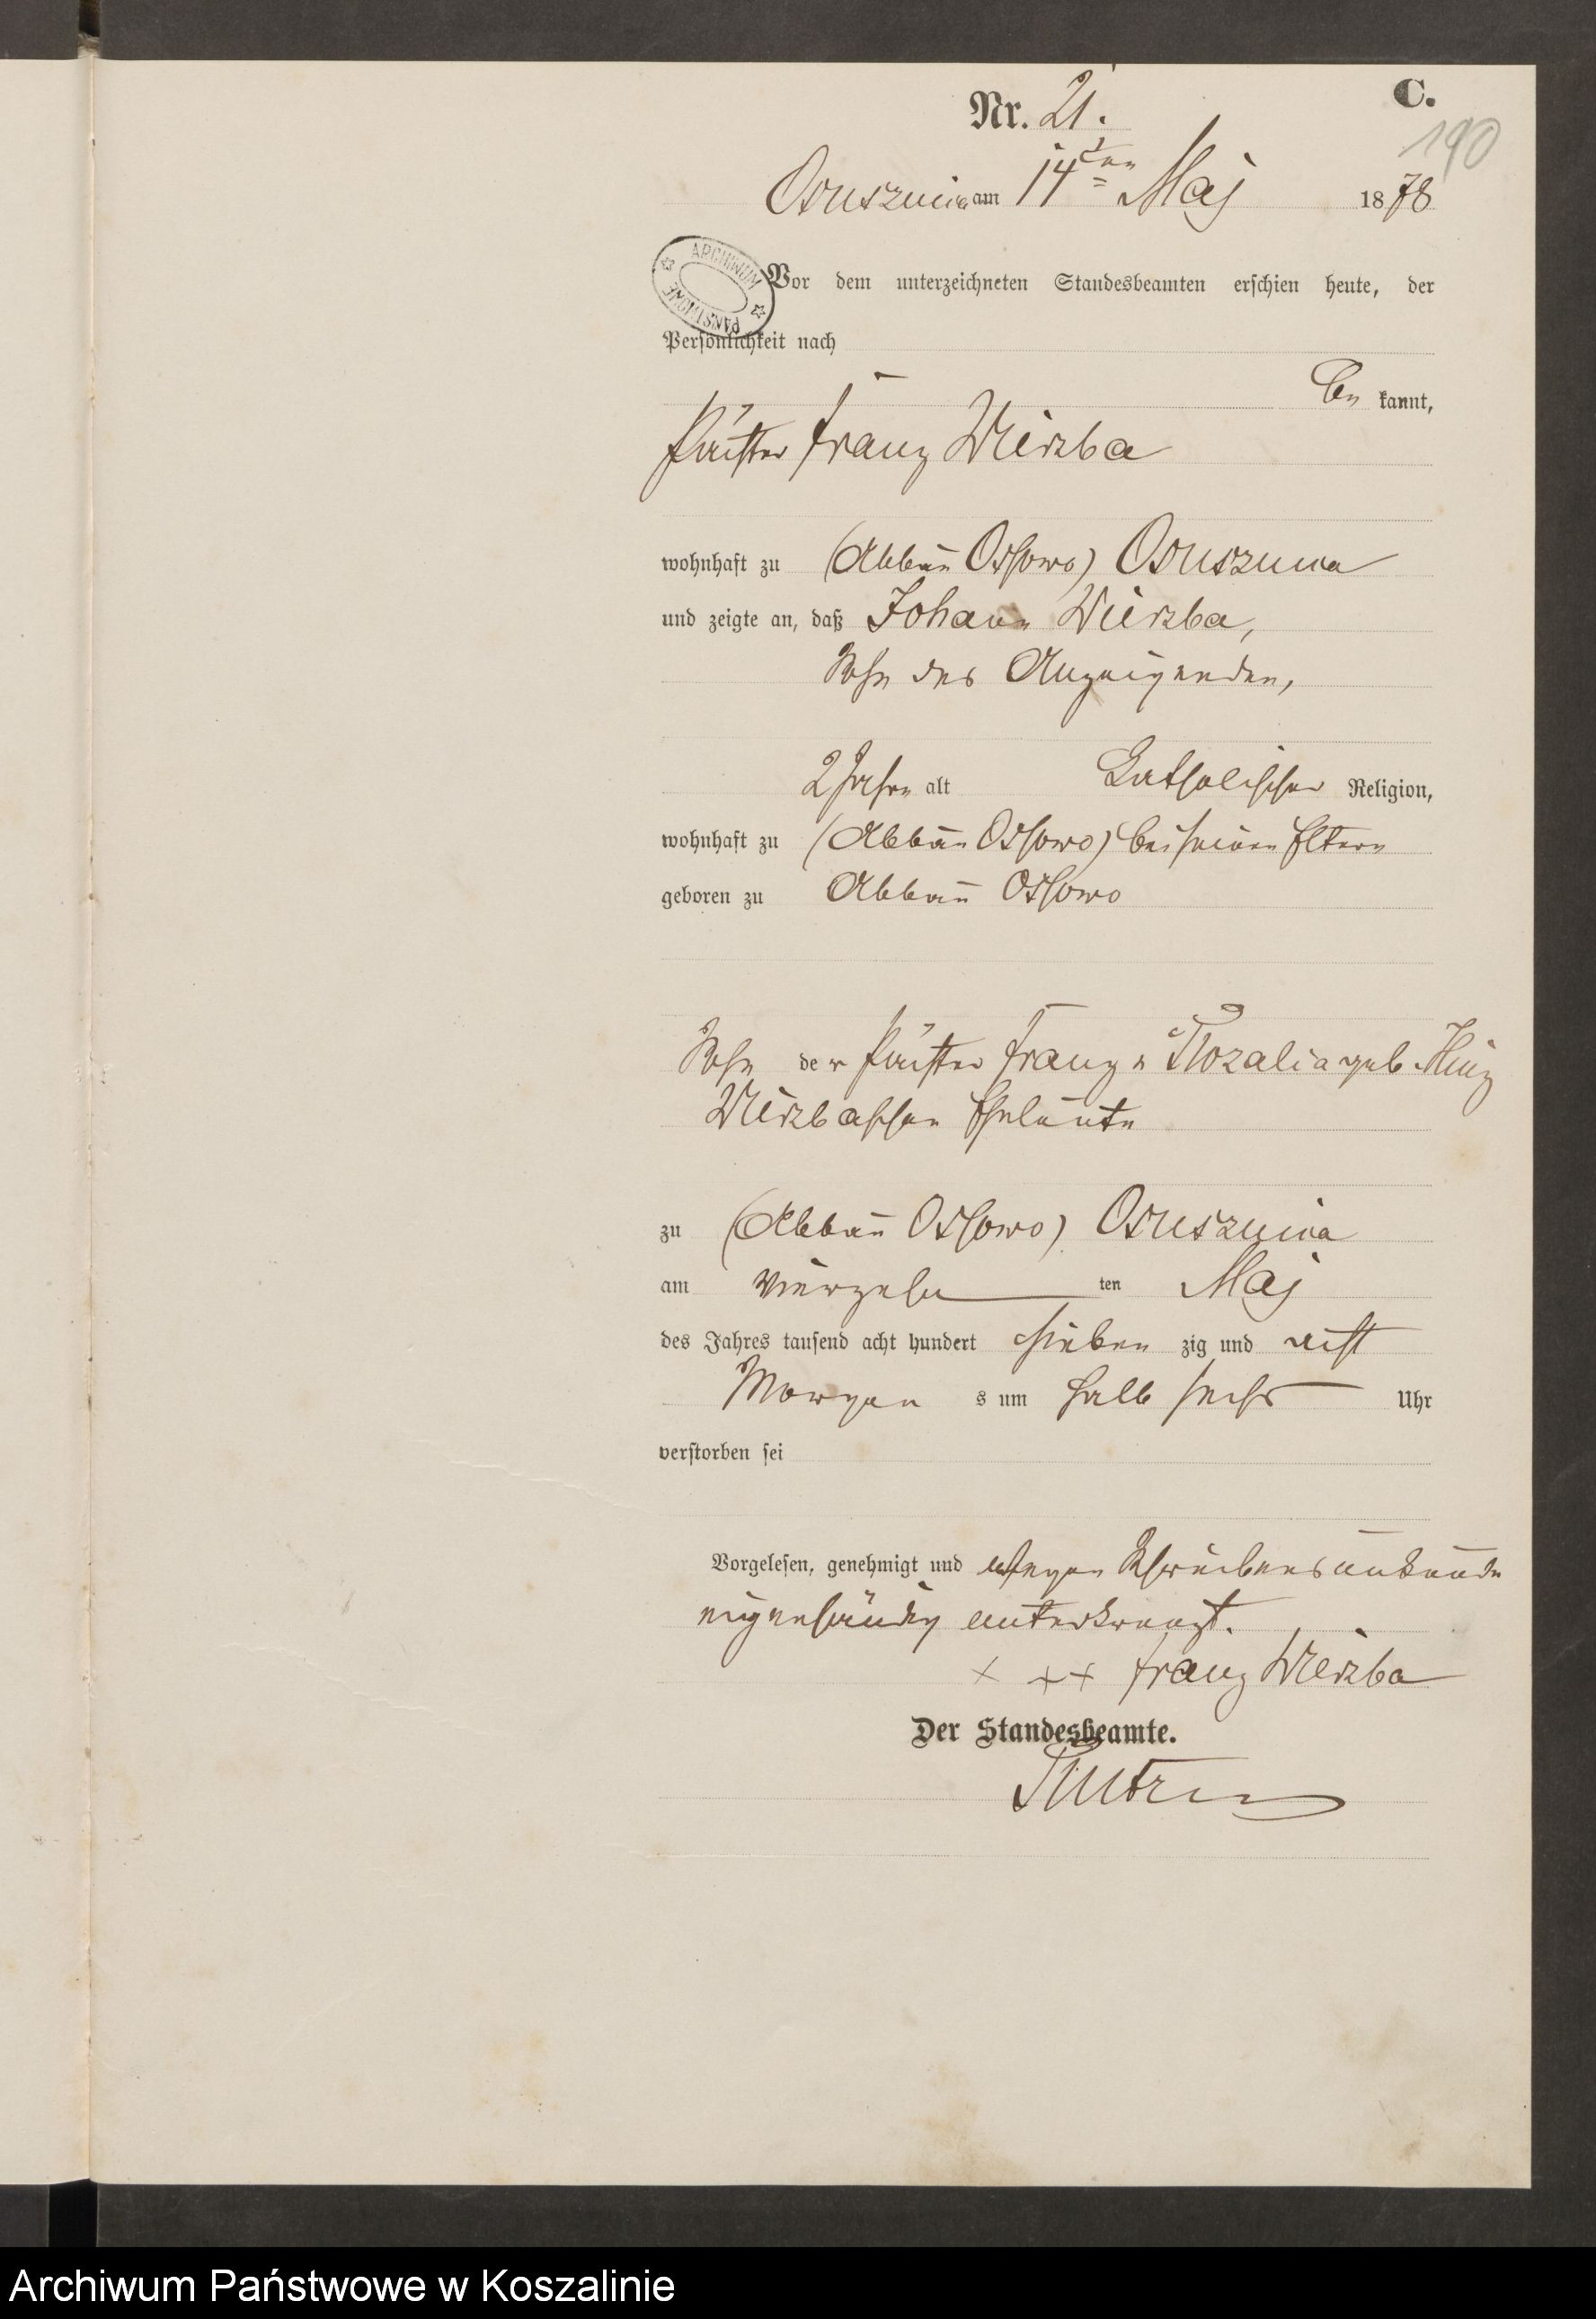 C.
Nr. 21.
190
Osusznica am 14ten Maj 1878
ARCHIWUM PAŃSTWOWE
Vor dem unterzeichneten Standesbeamten erschien heute, der
Persönlichkeit nach
be kannt,
Pächter Franz Wirzba
wohnhaft zu (Abbau Ossowo) Osusznica
und zeigte an, daß Johann Wirzba,
Sohn des Anzeigenden,
2 Jahre alt Katholischer Religion,
wohnhaft zu (Abbau Ossowo) bei seinen Eltern
geboren zu Abbau Ossowo
Sohn der Pächter Franz u Rozalia geb.
Wirzbaschen Eheleute
zu (Abbau Ossowo) Osusznica
am vierzehn ten Maj
des Jahres tausend acht hundert sieben zig und acht
Morgen s um halb sechs Uhr
verstorben sei
Vorgelesen, genehmigt und wegen Schreibensunkunde
eigenhändig unterkreuzt.
+ ++ Franz Wirzba
Der Standesbeamte.
Archiwum Państwowe w Koszalinie